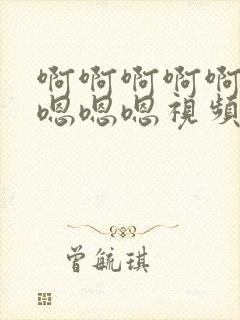 啊啊啊啊啊
嗯嗯嗯视频
曾毓琪